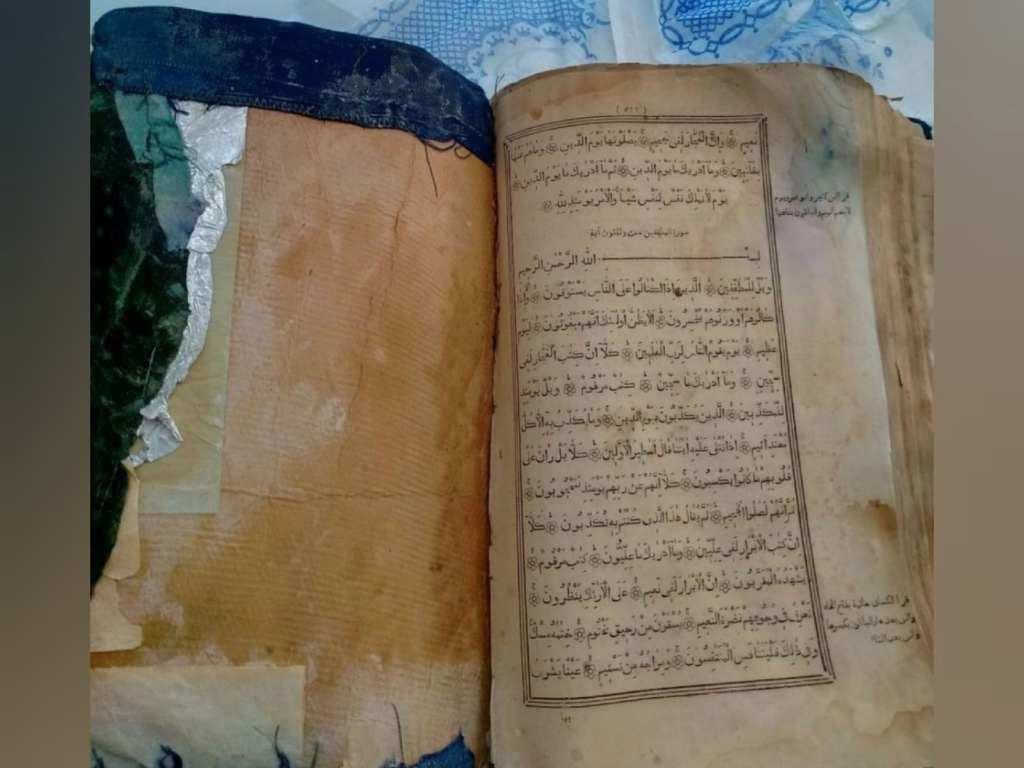 نعيم وان الفجار لفى جحيم يصلونها يوم الدين وما هم عنها
بغائبين وما ادريك ما يوم الدين ثم ما ادريك ما يوم الدين
يوم لا تملك نفس لنفس شيئا والامر يومئذ لله
سورة المطففين ست وثلثون آية
بسم الله الرحمن الرحيم
ويل للمطففين الذين اذا اكتالوا على الناس يستوفون واذا
كالوهم او وزنوهم يخسرون الا يظن اولئك انهم مبعوثون ليوم
عظيم يوم يقوم الناس لرب العلمين كلا ان كتب الفجار لفى
سجين وما ادريك ما سجين كتب مرقوم ويل يومئذ
للمكذبين الذين يكذبون بيوم الدين وما يكذب به الا كل
معتد اثيم اذا تتلى عليه ايتنا قال اساطير الاولين كلا بل ران على
قلوبهم ما كانوا يكسبون كلا انهم عن ربهم يومئذ لمحجوبون
ثم انهم لصالوا الجحيم ثم يقال هذا الذى كنتم به تكذبون كلا
ان كتب الابرار لفى عليين وما ادريك ما عليون كتب مرقوم
يشهده المقربون ان الابرار لفى نعيم على الارائك ينظرون
تعرف فى وجوههم نضرة النعيم يسقون من رحيق مختوم ختمه مسك
وفى ذلك فليتنافس المتنافسون ومزاجه من تسنيم عينا يشرب
بها
قرأ ابن كثير وابو عمرو يوم
قرأ الكسائى خاتمه بفتح الخاء